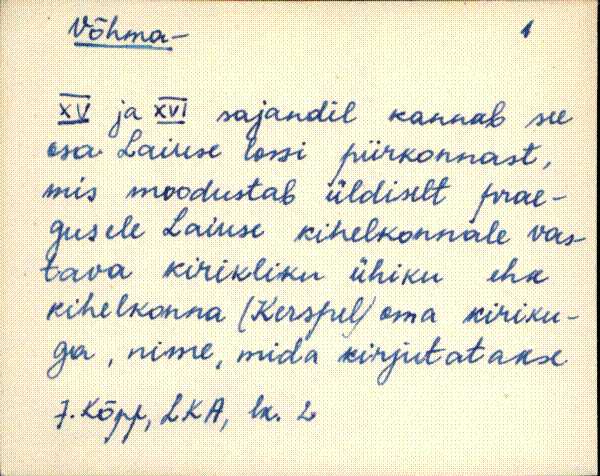 Võhma- 1
XV ja XVI sajandil kannab see
osa Laiuse lossi piirkonnast,
mis moodustab üldiselt prae-
gusele Laiuse kihelkonnale vas-
tava kirikliku ühiku ehk
kihelkonna (Kerspel) oma kiriku-
ga, nime, mida kirjutatakse
J. Kõpp, LKA, lk. 2